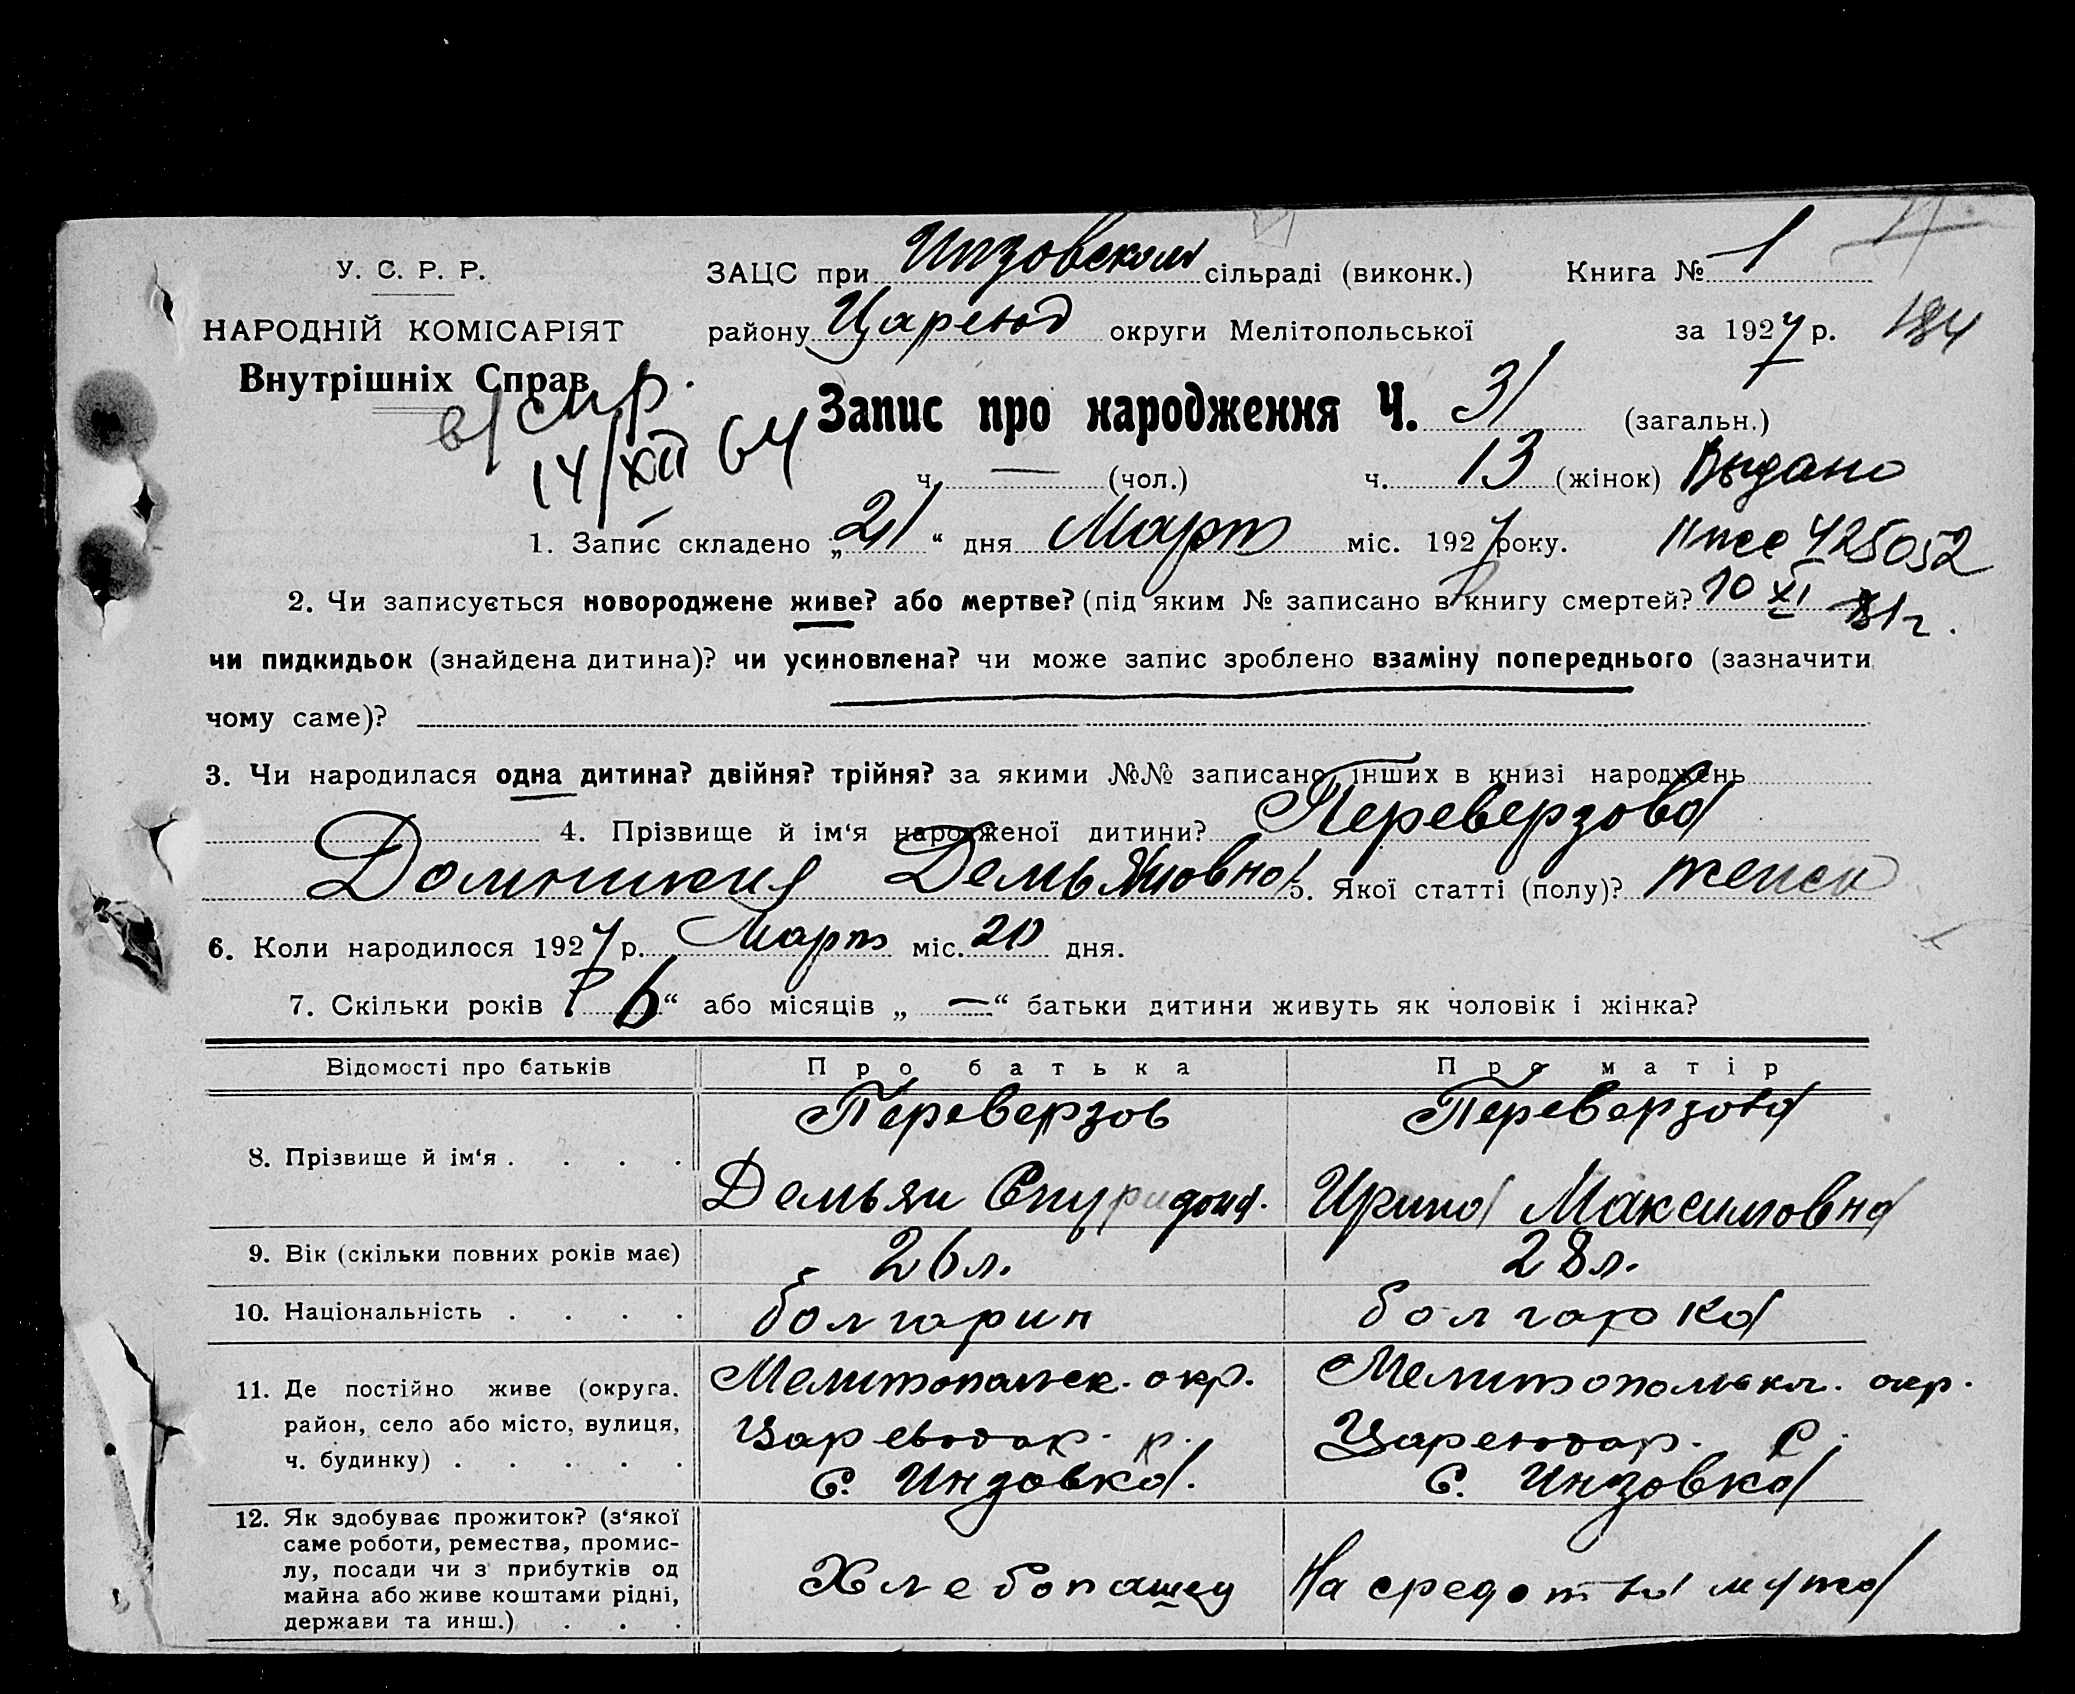 У. С. Р. Р.
НАРОДНІЙ КОМІСАРІЯТ
Внутрішніх Справ
в/ смр.
14/XII 64
ЗАЦС при Инзовском сільраді (виконк.) Книга № 1
району Царевод округи Мелітопольської за 1927 р. 184
Запис про народження Ч. 31 (загальн.)
ч. — (чол.) ч. 13 (жінок) Выдано
1. Запис складено „21“ дня Март міс. 1927 року. 425052
2. Чи записується новороджене живе? або мертве? (під яким № записано в книгу смертей? 10 XI 81г.
чи пидкидьок (знайдена дитина)? чи усиновлена? чи може запис зроблено взаміну попереднього (зазначити
чому саме)?
3. Чи народилася одна дитина? двійня? трійня? за якими №№ записано інших в книзі народжень
4. Прізвище й ім‘я народженої дитини? Переверзова
Домникия Демьяновна 5. Якої статті (полу)? женск
6. Коли народилося 1927 р. Март міс. 20 дня.
7. Скільки років „6“ або місяців „—“ батьки дитини живуть як чоловік і жінка?
Відомості про батьків Про батька Про матір
8. Прізвище й ім‘я . . . . Переверзов Переверзова
Демьян Спиридон. Ирина Максимовна
9. Вік (скільки повних років має) 26 л. 28 л.
10. Національність . . . . болгарин болгарка
11. Де постійно живе (округа, Мелитопольск. окр. Мелитопольск. окр.
район, село або місто, вулиця, Цареводар. р. Цареводар. р.
ч. будинку) . . . . . С. Инзовка. С. Инзовка
12. Як здобуває прожиток? (з‘якої
саме роботи, ремества, промис-
лу, посади чи з прибутків од Хлебопашец На средства мужа
майна або живе коштами рідні,
держави та инш.) . . .